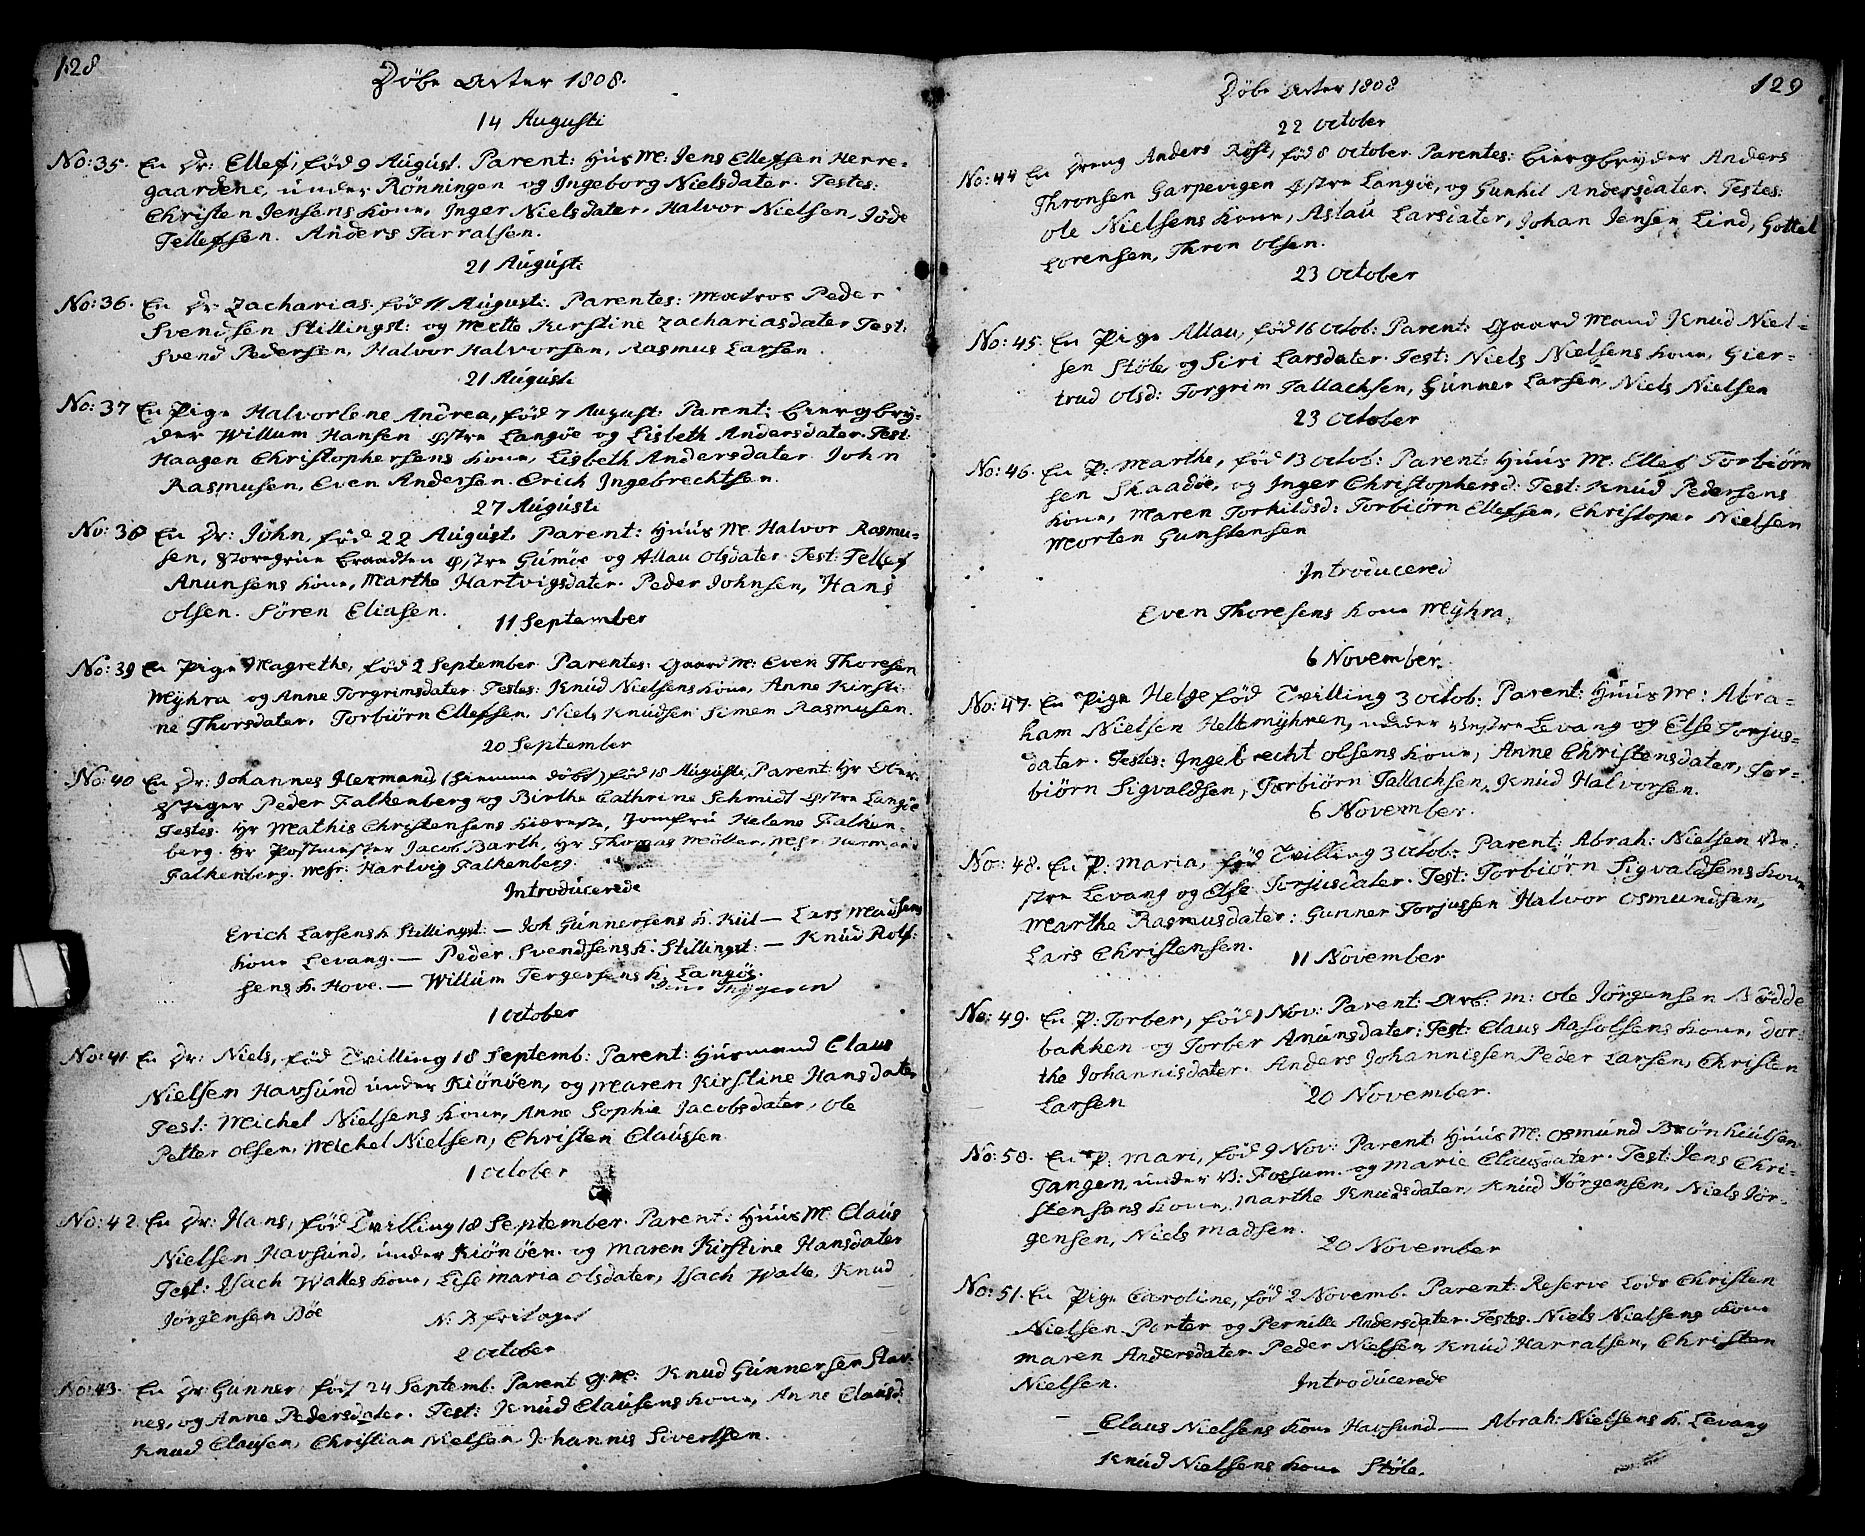 128
Döbe Acter 1808.
14 Augusti
No: 35. En Dr: Ellef, född 9 August. Parent: Hüs M: Jens Ellefsen Herre-
gaardene, under Rönningen og Ingeborg Nielsdater. Testes:
Christen Jensens kone, Inger Nielsdater, Halvor Nielsen, Jöde
Tellefsen. Anders Tarralsen.
21 Augusti
No: 36. En Dr Zacharias. född 11 Augusti. Parentes: Matros Peder
Svendsen Stillingst: og Mette Kirstine Zachariasdater Test:
Svend Pedersen, Halvor Halvorsen, Rasmus Larsen.
21 Augusti
No: 37 En Pige Halvorlene Andrea, född 7 August: Parent: Biergbry-
der Willum Hansen Östre Langöe og Lisbeth Andersdater. Test:
Haagen Christophersens kone, Lisbeth Andersdater John
Rasmusen, Even Andersen. Erich Ingebrechtsen.
27 Augusti
No: 38 En Dr: John, född 22 August. Parent: Huus M: Halvor Rasmu-
sen, Storegrüe Braadten Östre Gümöe og Allau Olsdater Test: Tellef
Anunsens kone, Marthe Hartvigsdater. Peder Johnsen, Hans
Olsen. Sören Eliasen.
11 September
No: 39 En Pige Magrethe, född 2 September Parentes: Gaard M: Even Thoresen
Mÿhra og Anne Torgrimsdater Testes: Knud Nielsens kone, Anne Kirsti-
ne Thorsdater. Torbiörn Ellefsen. Niels Knudsen Simen Rasmusen.
20 September
No: 40 En Dr: Johannes Hermand (hiemme döbt) född 18 Augusti, Parent: Hr Ober
Stiger Peder Falkenberg og Birthe Cathrine Schmidt Östre Langöe
Testes. Hr Mathis Christensens Kiæreste, Jomfrü Helene Falken-
berg. Hr Postmester Jacob Barth, Hr Thomas Möller, Msr. Hermand
Falkenberg. Msr: Hartvig Falkenberg.
Introducerede
Erich Larsens k Stillingst: — Joh Gunnersens k. Kiil — Lars Madsens
kone Levang. — Peder Svendsens k: Stillingst: — Knud Rolf-
sens k. Hove. — Willum Tergersens k. Langöe.
1 October
No: 41 En Dr: Niels, född Tvilling 18 Septemb: Parent: Husmand Claus
Nielsen Havsund under Kiönöen, og Maren Kirstine Hansdater
Test: Michel Nielsens kone, Anne Sophie Jacobsdater, Ole
Petter Olsen, Michel Nielsen, Christen Claussen.
1 October
No: 42. En Dr: Hans, född Tvilling 18 September. Parent: Huus M. Claus
Nielsen Havsund, under Kiönöen. og Maren Kirstine Hansdater
Test: Isach Walles kone, Lise Maria Olsdater, Isach Walle, Knud
Jörgensen Böe
2 October
No: 43. En Dr: Gunner född 24 Septemb. Parent G. M: Knud Gunnersen Stav-
nes, og Anne Pedersdater. Test: Knud Clausens kone, Anne Clausd:
Knud Clausen, Christian Nielsen Johannis Sivertsen.
129
Döbe Acter 1808
22 October
No: 44 En Dreng Anders Röst, född 8 October Parentes: Biergbryder Anders
Thronsen Garpevigen Östre Langöe, og Gunhil Andersdater. Testes:
Ole Nielsens kone, Aslau Larsdater, Johan Jensen Lind, Gottel
Lorensen, Thron Olsen.
23 October
No: 45. En Pige Allau, född 16 Octob: Parent: Gaard Mand Knud Niel-
sen Stöle og Siri Larsdater. Test: Niels Nielsens kone, Gier-
trud Olsd: Torgrim Tallachsen, Gunner Larsen, Niels Nielsen
23 October
No: 46. En P. Marthe, född 13 Octob: Parent: Huus M. Ellef Torbiörn
sen Skaadöe, og Inger Christophersd: Test: Knud Pedersens
kone, Maren Torkildsd: Torbiörn Ellefsen, Christoper Nielsen
Morten Gunstensen
Introducered
Even Thoresens kone Mÿhra.
6 November.
No: 47. En Pige Helge född Tvilling 3 Octob: Parent: Huus M: Abra-
ham Nielsen Heltemÿhren, under Vestre Levang og Else Torjus-
dater. Testes: Ingebrecht Olsens kone, Anne Christensdater, Tor-
biörn Sigvaldsen, Torbiörn Tallachsen, Knud Halvorsen.
6 November.
No: 48. En P. Maria, född Tvilling 3 Octob. Parent: Abrah: Nielsen Ve-
stre Levang og Else Torjusdater. Test: Torbiörn Sigvaldsens kone
Marthe Rasmusdater: Gunner Torjussen Halvor Osmundsen,
Lars Christensen.
11 November
No: 49. En P: Torber, född 1 Nov: Parent: Arb: M: Ole Jörgensen Bödde
bakken og Torber Anunsdater: Test: Claus Aasolsens kone, Dor-
the Johannisdater. Anders Johannissen Peder Larsen, Christen
Larsen
20 November.
No: 50. En P. Mari, född 9 Nov: Parent: Huus M: Osmund Brönhulsen
Tangen, under V: Fossum. og Marie Clausdater. Test: Jens Chri-
stensens kone, Marthe Knudsdater, Knud Jörgensen, Niels Jör-
gensen, Niels Madsen.
20 November
No: 51. En Pige Caroline, född 2 Novemb. Parent: Reserve Lods Christen
Nielsen Porter og Pernille Andersdater. Testes. Niels Nielsens kone
Maren Andersdater Peder Nielsen, Knud Harralsen, Christen
Nielsen.
Introducerede
Claus Nielsens kone Havsund — Abrah: Nielsens k. Levang
Knud Nielsens kone Stöle.